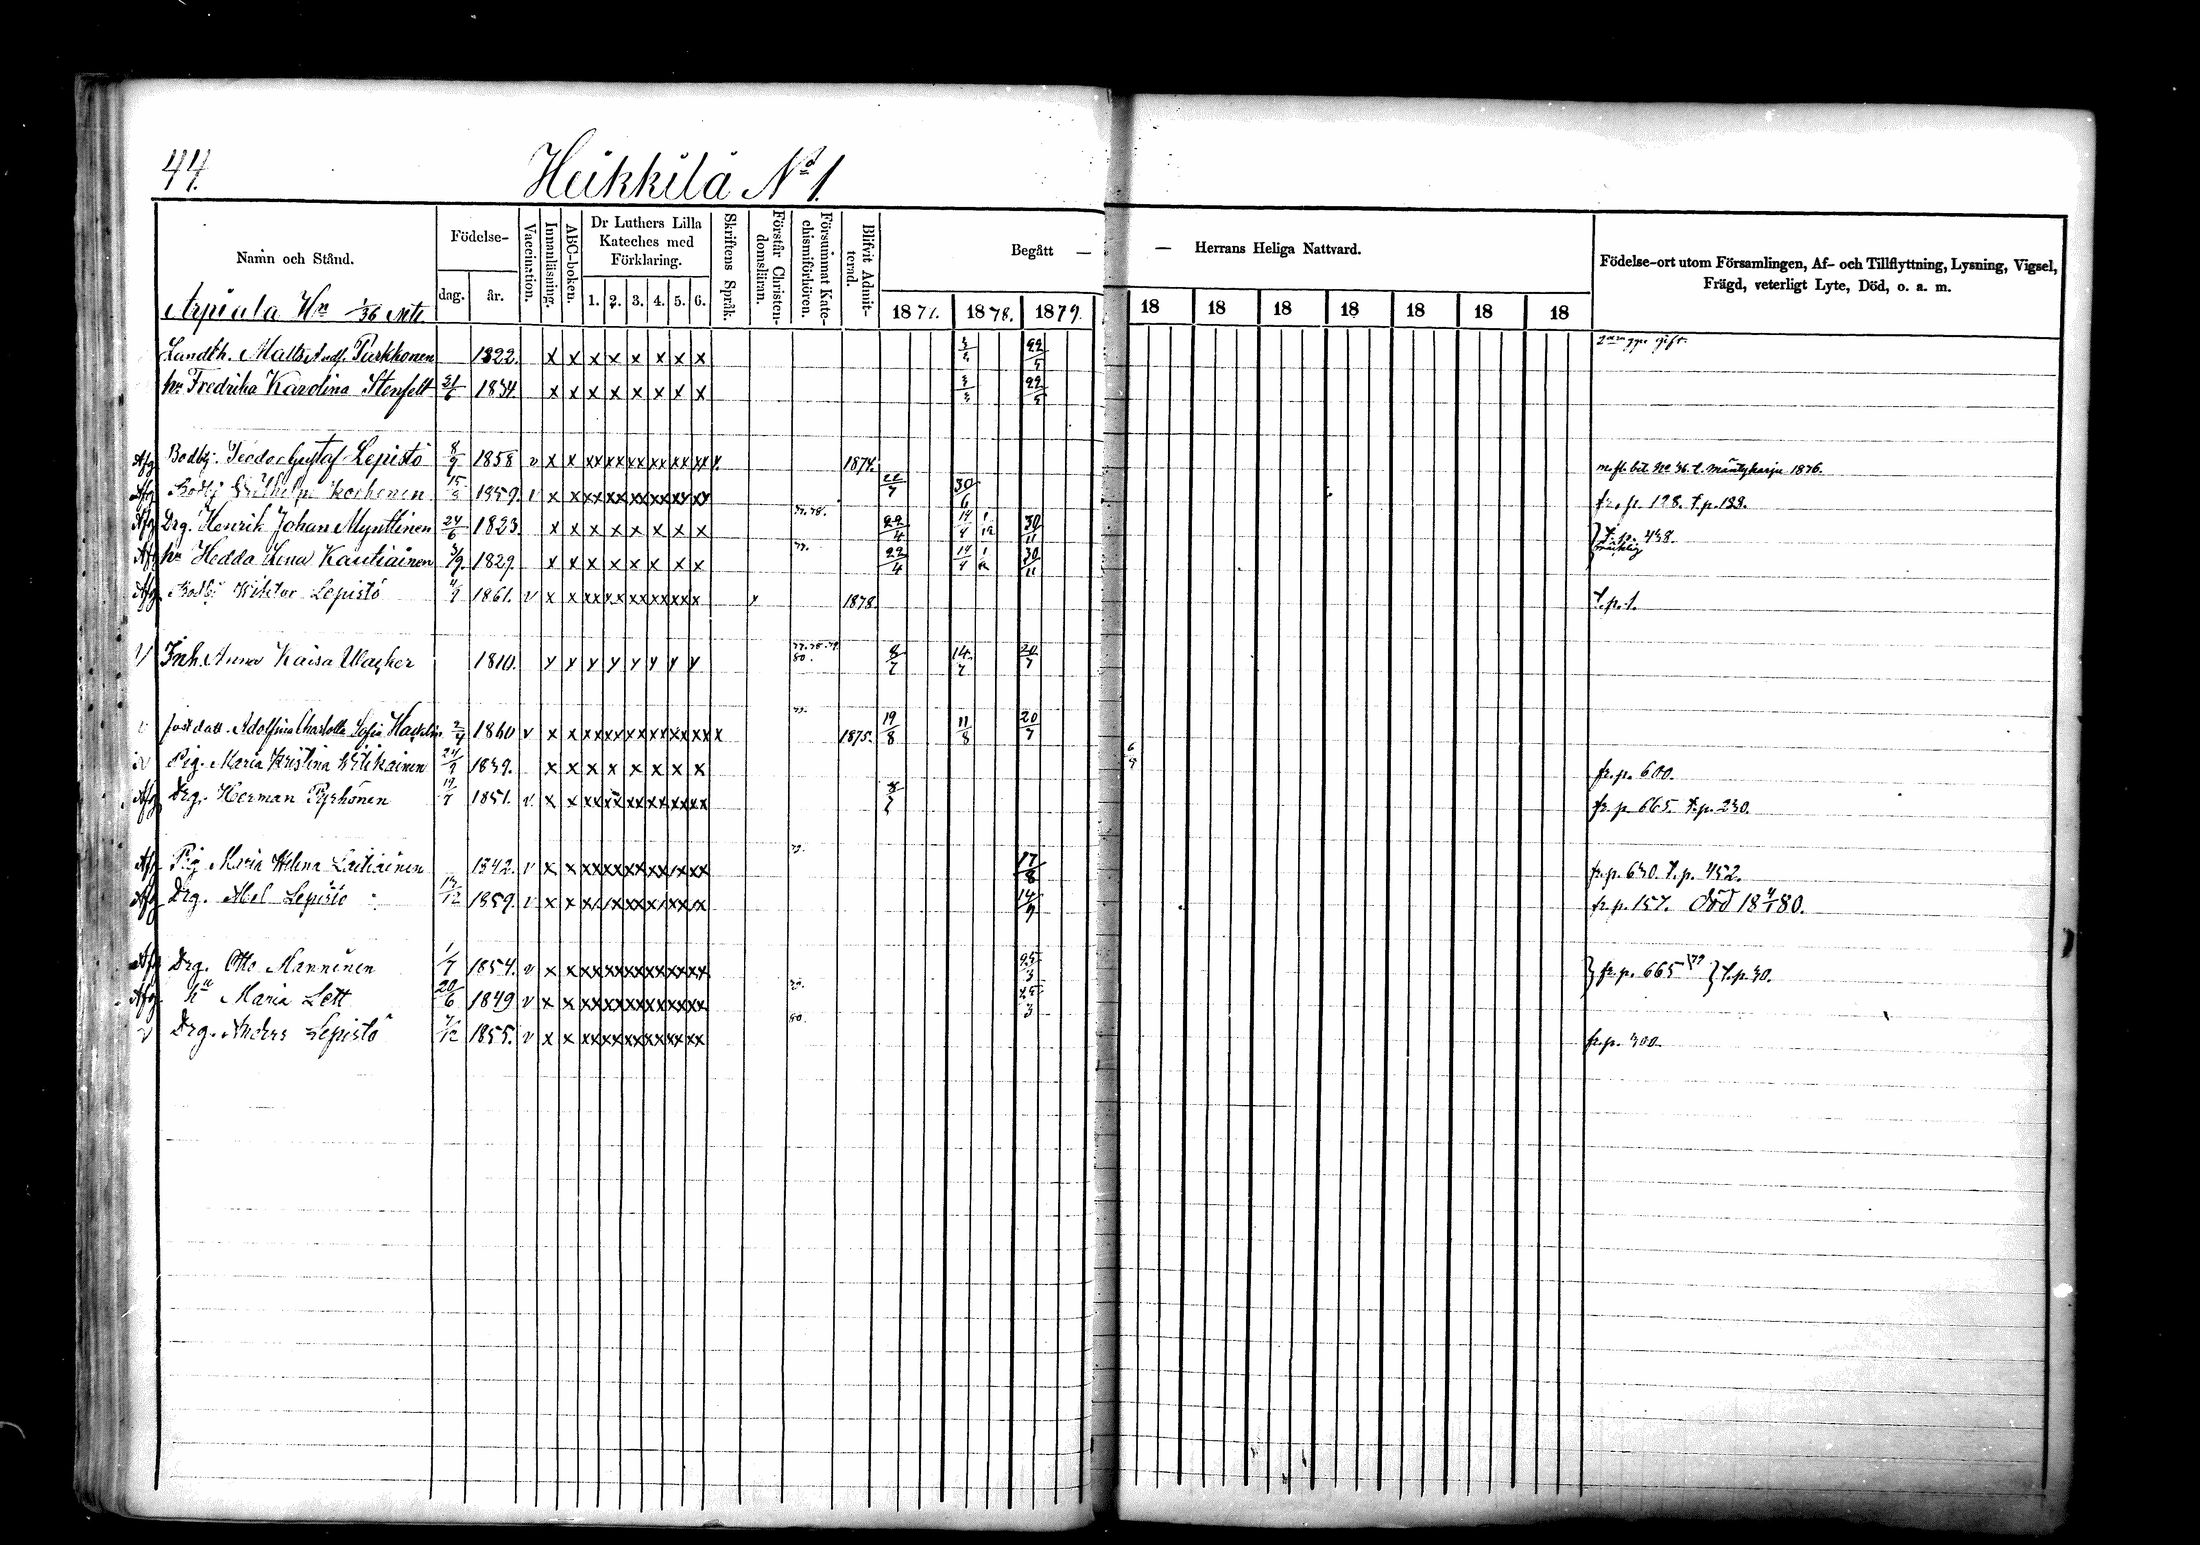 44.
Heikkilä No 1.
Namn och Stånd.
Födelse-
dag.
år.
Vaccination.
Innanläsning.
ABC-boken.
Dr Luthers Lilla Kateches med Förklaring.
1. 2. 3. 4. 5. 6.
Skriftens Språk.
Förstår Christendomsläran.
Försummat Katechismiförhören.
Blifvit Admitterad.
Begått —
— Herrans Heliga Nattvard.
1877. 1878. 1879.
18 18 18 18 18 18 18
Födelse-ort utom Församlingen, Af- och Tillflyttning, Lysning, Vigsel,
Frägd, veterligt Lyte, Död, o. a. m.
Arpiala Hn 1/36 Mtl.
Landth. Matts Adf. Purkhonen 1822. x x x x x x x x 3/3 22/5 gift.
hu Fredrika Karolina Stenfelt 21/6 1834. x x x x x x x x 3/3 22/5
Afg Bodbg. Teodor Gustaf Lepistö 8/9 1858 v x x xx xx xx xx xx xx x 1874. Mäntyharju 1876.
Afg Wilhelm Korhonen 1859. v x x xx xx xx xx xx xx 22/7 30/6 fr. p. 128. t. p. 133.
Afg Drg. Henrik Johan Mynttinen 24/6 1823. x x x x x x x x 77.78. 22/4 14/4 1/12 30/11 } t. p. 438.
Afg hu Hedda Lena Kautiainen 3/9. 1829. x x x x x x x x 77. 22/4 14/4 1/12 30/11
Afg Wiktor Lepistö 1861. v x x xx xx xx xx xx xx x 1878. t. p. 1.
Inh. Anna Kaisa Wacker 1810. y y y y y y y y 77.78.79. 80. 8/7 14/7 20/7
Adolfina Charlotta Sofia 2/4 1860 v x x xx xx xx xx xx xx x 77. 1875. 19/8 11/8 20/7
Pig. Maria Kristina Witikainen 24/9 1839. x x x x x x x x 6/4 fr. p. 600.
Afg Drg. Herman Pyrhönen 19/7 1851. v x x xx xx xx xx xx xx 8/7 fr. p. 665. t. p. 230.
Afg Pig Maria Helena Laitiainen 1842. v x x xx xx xx xx xx xx 79. 17/8 fr. p. 630. t. p. 452.
Afg Drg. Abel Lepistö 13/12 1859. v x x xx xx xx xx xx xx 14/9 fr. p. 157. död 18 4/1 80.
Afg Drg. Otto Manninen 1/7 1854. v x x xx xx xx xx xx xx 25/3 } fr. p. 665 79 } t. p. 30.
Afg hu Maria Lett 20/6 1849 v x x xx xx xx xx xx xx 25/3
v Drg. Anders Lepistö 7/12 1855. v x x xx xx xx xx xx xx 80. fr. p. 300.